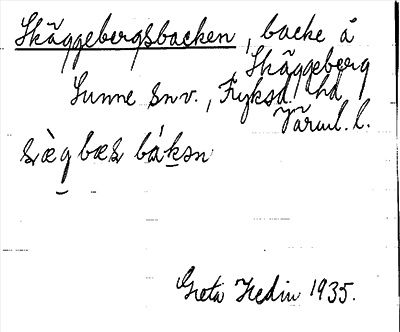 Skäggebergsbacken, backe å
Skäggeberg
Sunne snv., Fryksd. hd
Värml. l.
Greta Hedin 1935.